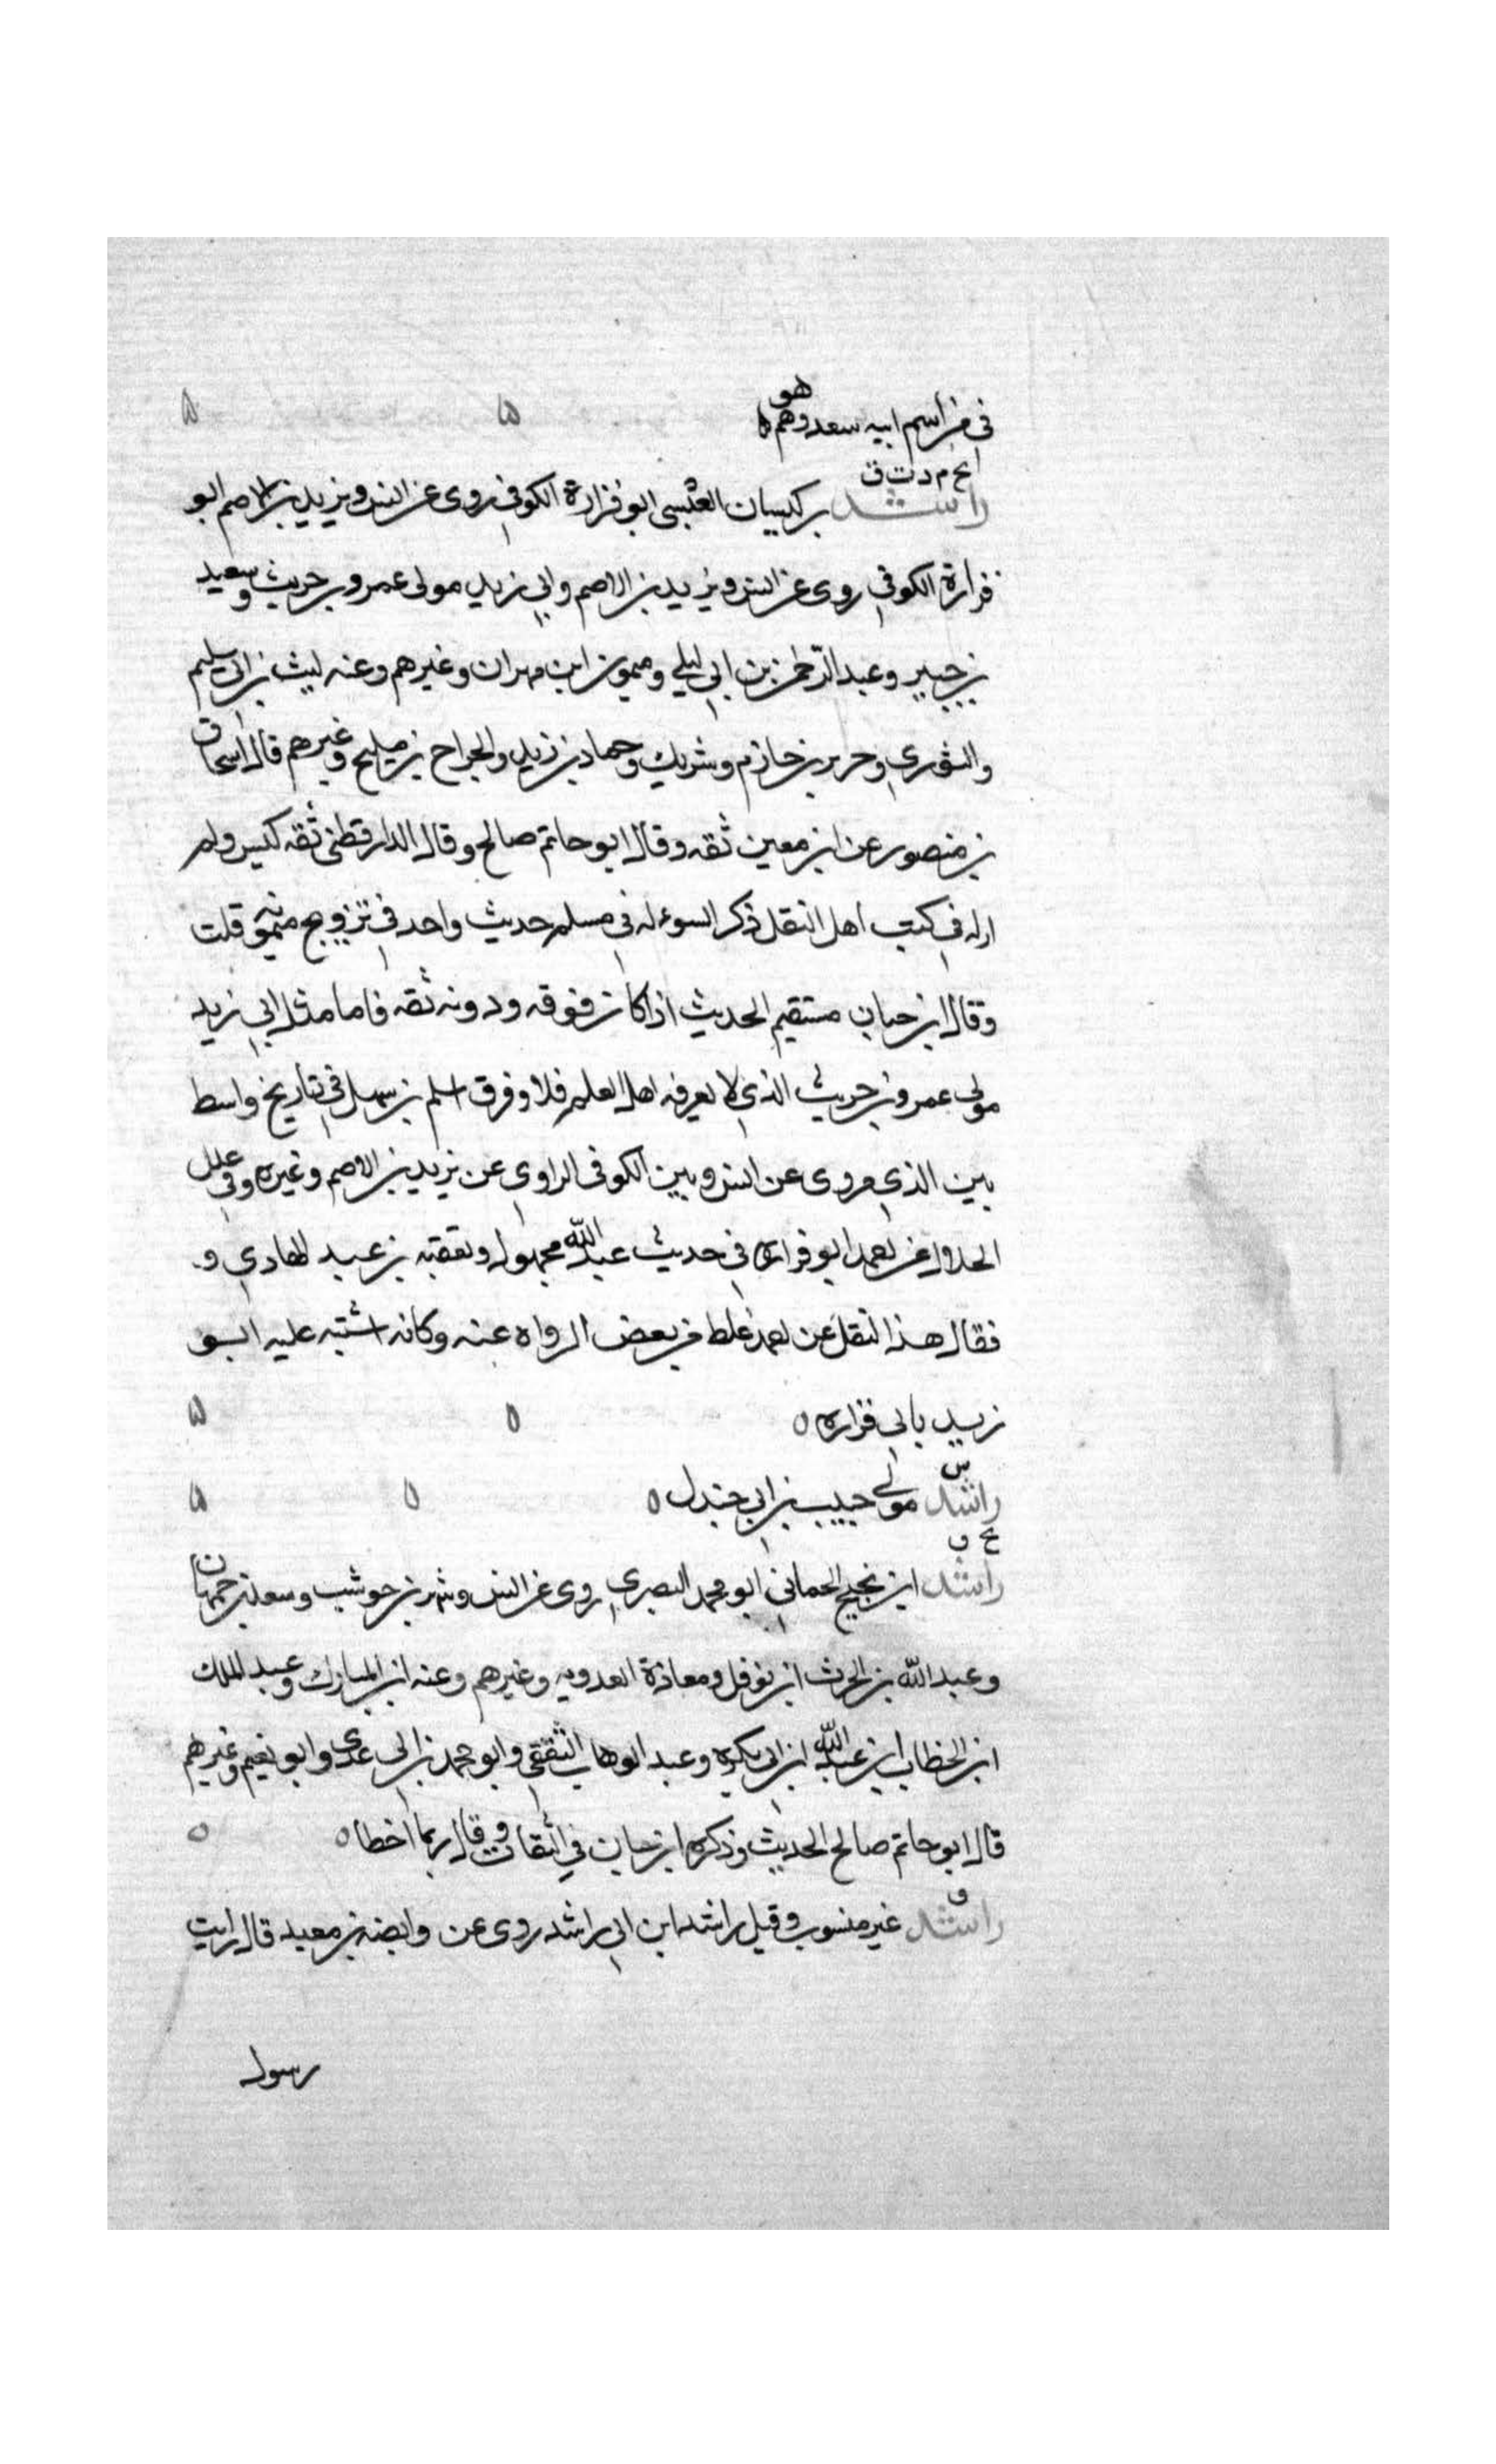 في من اسم ابيه سعد وهم هو
بخ م د ت ق
راشد بن كيسان العبسي ابو فزارة الكوفي روى عن انس ويزيد بن الاصم ابو
فزارة الكوفي روى عن انس ويزيد بن الاصم وابي زيد مولى عمرو بن حريث وسعيد
بن جبير وعبد الرحمن بن ابي ليلى وميمون ابن مهران وغيرهم وعنه ليث بن ابي سليم
والثوري وجرير بن حازم وشريك وحماد بن زيد والجراح بن مليح وغيرهم قال اسحاق
بن منصور عن ابن معين ثقه وقال ابو حاتم صالح وقال الدارقطني ثقه كيس ولم
ار له في كتب اهل النقل ذكر السوء له في مسلم حديث واحد في تزويج ميمونه قلت
وقال ابن حبان مستقيم الحديث اذا كان فوقه ودونه ثقه فاما مثل ابي زيد
مولى عمرو بن حريث الذي لا يعرفه اهل العلم فلا وفرق اسلم بن سهل في تاريخ واسط
بين الذي يروى عن انس وبين الكوفي الراوي عن يزيد بن الاصم وغيره وفي علل
الخلال عن احمد ابو فزاره في حديث عبد الله مجهول وتعقبه بن عبد الهادي و
فقال هذا النقل عن احمد غلط من بعض الرواه عنه وكانه اشتبه عليه ابو
زيد بابي فزاره
س
راشد مولى حبيب بن ابي جندل
بخ ق
راشد ابن نجيح الحماني ابو محمد البصري روى عن انس وشهر بن حوشب وسعيد بن جمهان
وعبد الله بن الحرث ابن نوفل ومعاذة العدويه وغيرهم وعنه ابن المبارك وعبد الملك
ابن الخطاب ابن عبد الله ابن ابي بكره وعبد الوهاب الثقفي وابو محمد بن ابي عدي وابو نعيم وغيرهم
قال ابو حاتم صالح الحديث وذكره ابن حبان في الثقات وقال ربما اخطا
ق
راشد غير منسوب وقيل راشد ابن ابي راشد روى عن وابصه بن معبد قال رايت
رسول